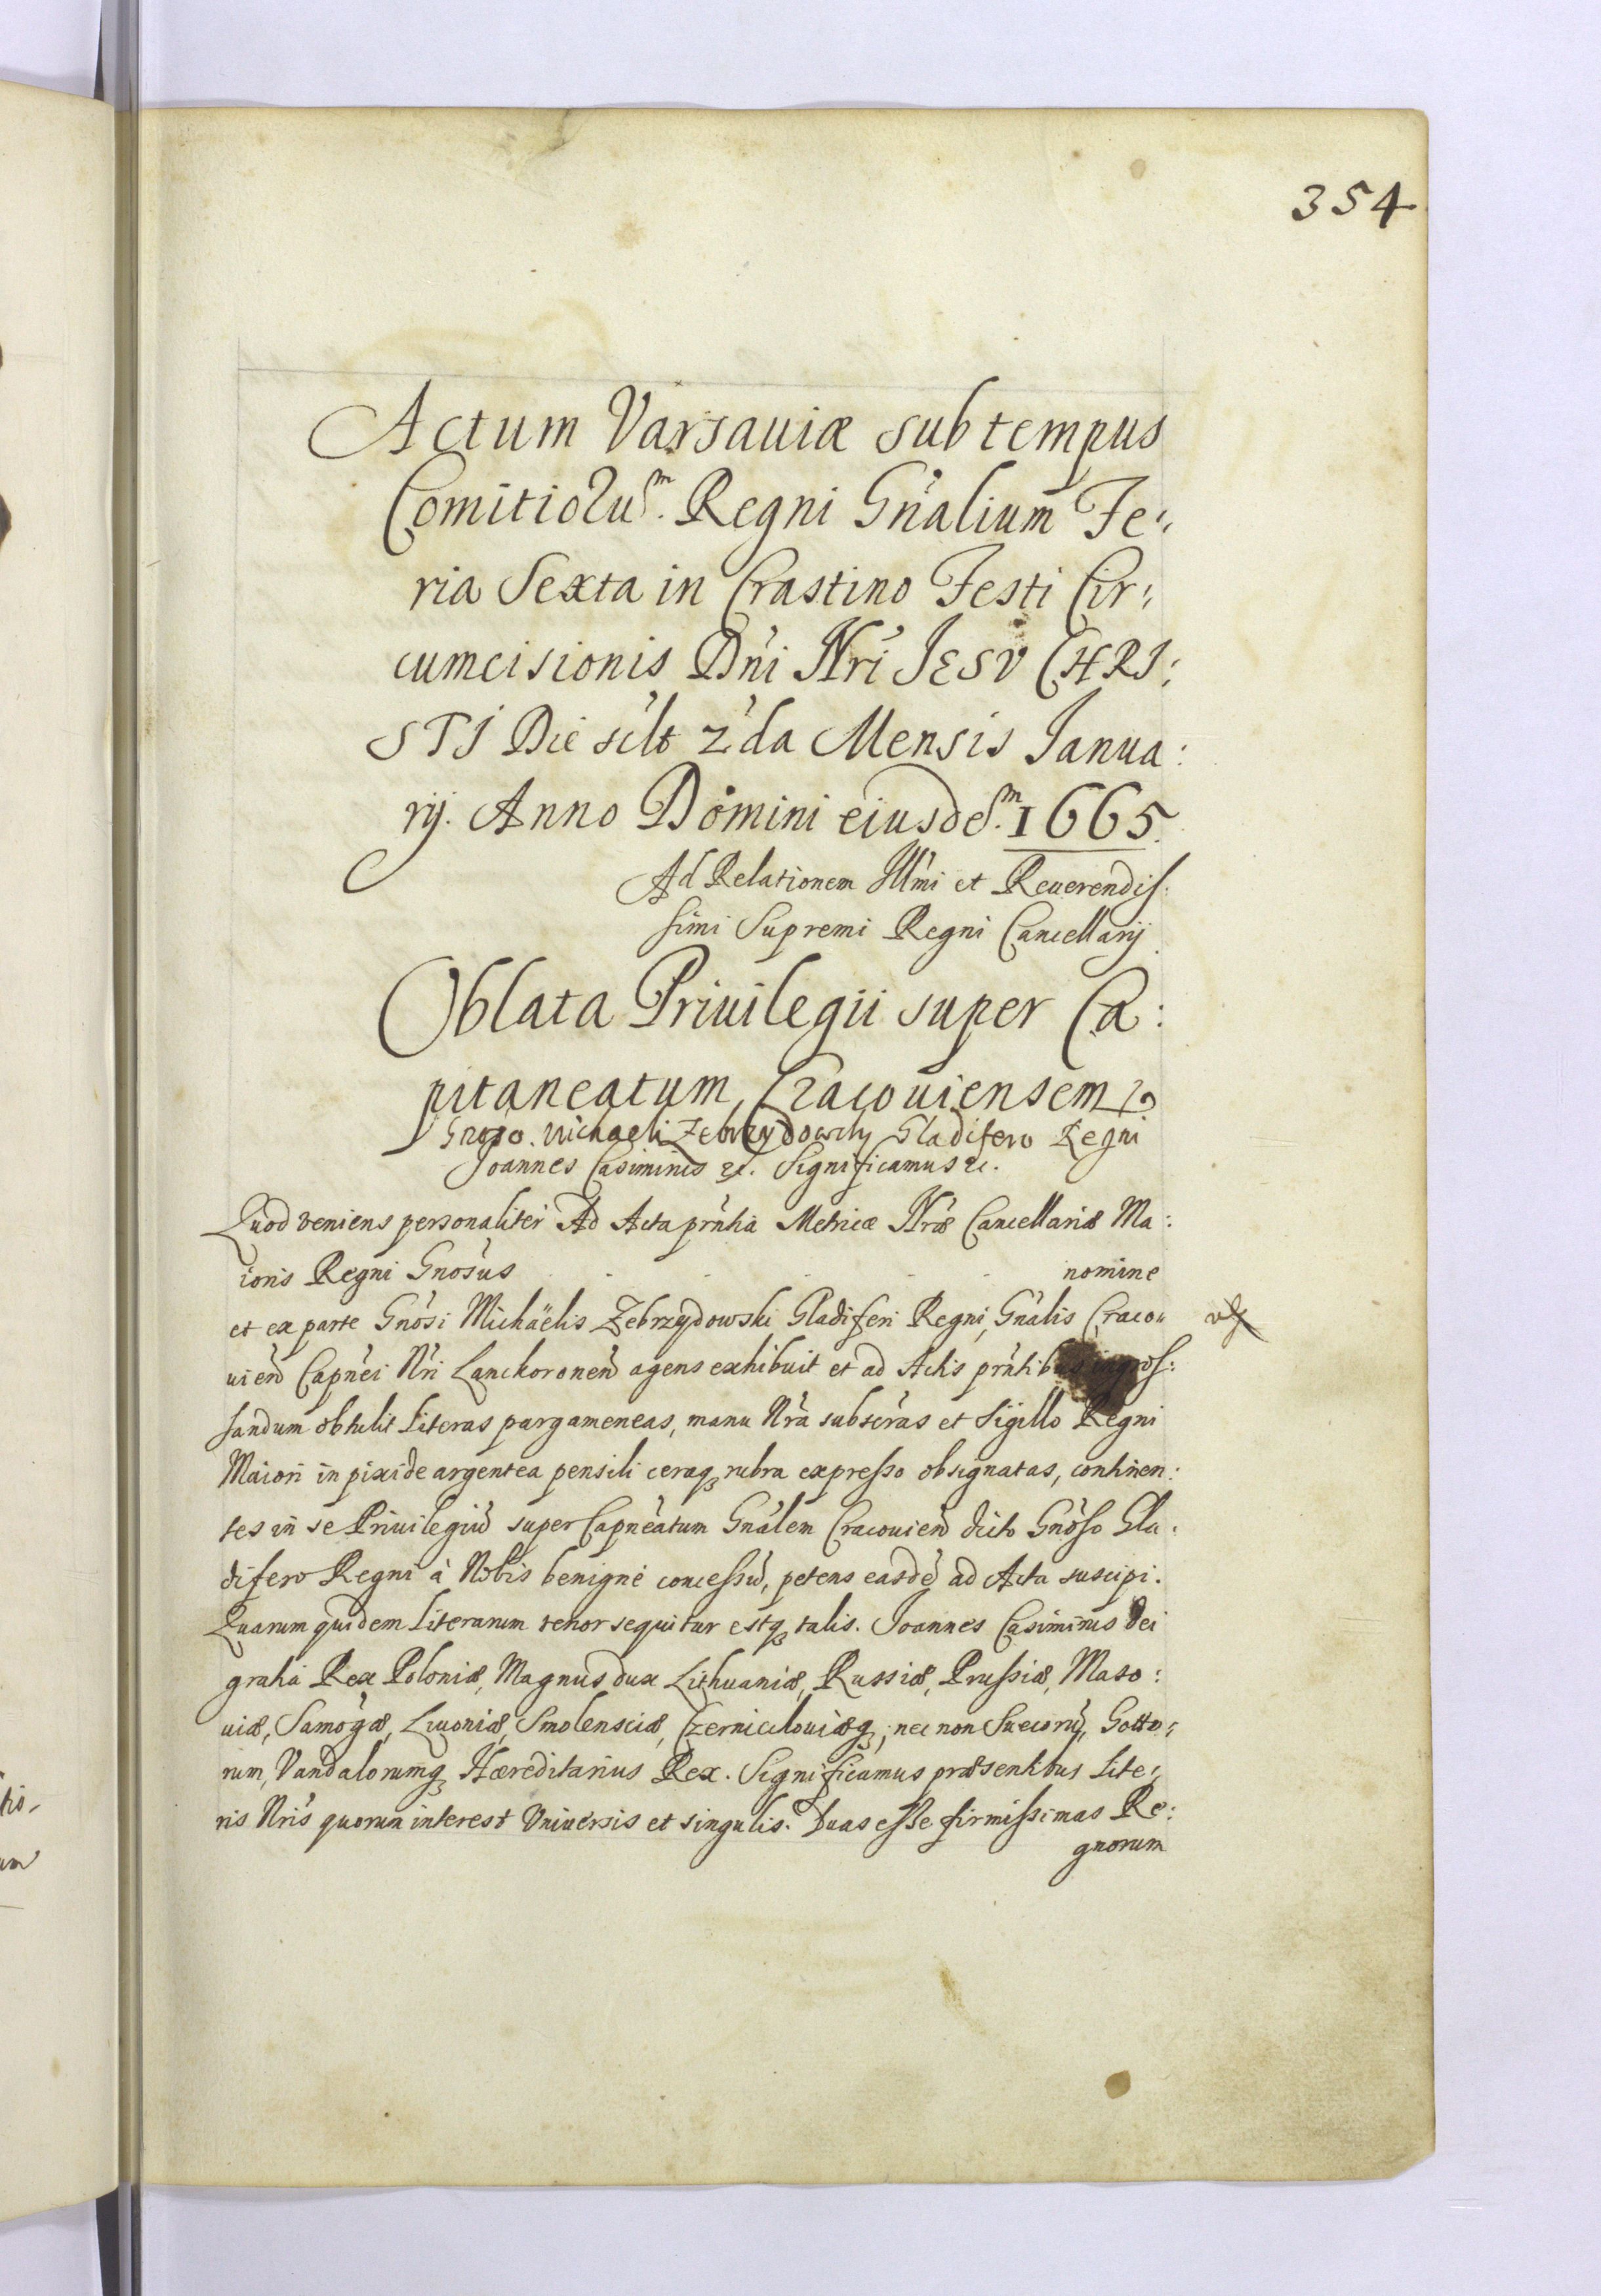 354
Actum Varsauiæ sub tempus
Comitioru͠m. Regni Gn̄alium Fe:
ria Sexta in Crastino Festi Cir:
cumcisionis Dn̄i Nr̄i JESV CHRI:
STI Die sc̄lt 2̄da Mensis Janua:
rij. Anno Domini eiusdem. 1665.
Ad Relationem Illm̄i et Reuerendis:
simi Supremi Regni Cancellarij
Oblata Priuilegii super Ca:
pitaneatum Cracouiensem
Gnoso. Michaeli Zebrzydowsky Gladifero Regni
Joannes Casimirus &c. Significamus &c.
Quod veniens personaliter Ad Acta prn̄tia Metricæ Nr̄æ Cancellariæ Ma:
ioris Regni Gnosus . . . . . . nomine
et ex parte Gnōsi Michäelis Zebrzydowski Gladiferi Regni, Gn̄alis Craco:
uien̄ Capn̄ei Nr̄i Lanckoronen̄ agens exhibuit et ad Actis prn̄tibus ingros:
sandum obtulit literas pargameneas, manu Nr̄a subscr̄as et Sigillo Regni
Maiori in pixide argentea pensili ceraq̨ rubra expresso obsignatas, continen:
tes in se Priuilegiū super Capn̄eatum Gn̄alem Cracouien̄ dicto Gnōso Gla:
difero Regni à Nobis benignè concessū, petens easdē ad Acta suscipi.
Quarum quidem literarum tenor sequitur estq̨ talis. Joannes Casimirus Dei
gratia Rex Poloniæ, Magnus dux Lithuaniæ, Russiæ, Prussiæ, Maso:
uiæ, Samōgæ, Liuoniæ, Smolensciæ, Czernicłouiæq̨, nec non Suecorū, Gotto:
rum, Vandalorumq̨ Hæreditarius Rex. Significamus præsentibus Lite:
ris Nr̄is quorum interest Vniuersis et singulis. Duas esse firmissimas Re:
gnorum